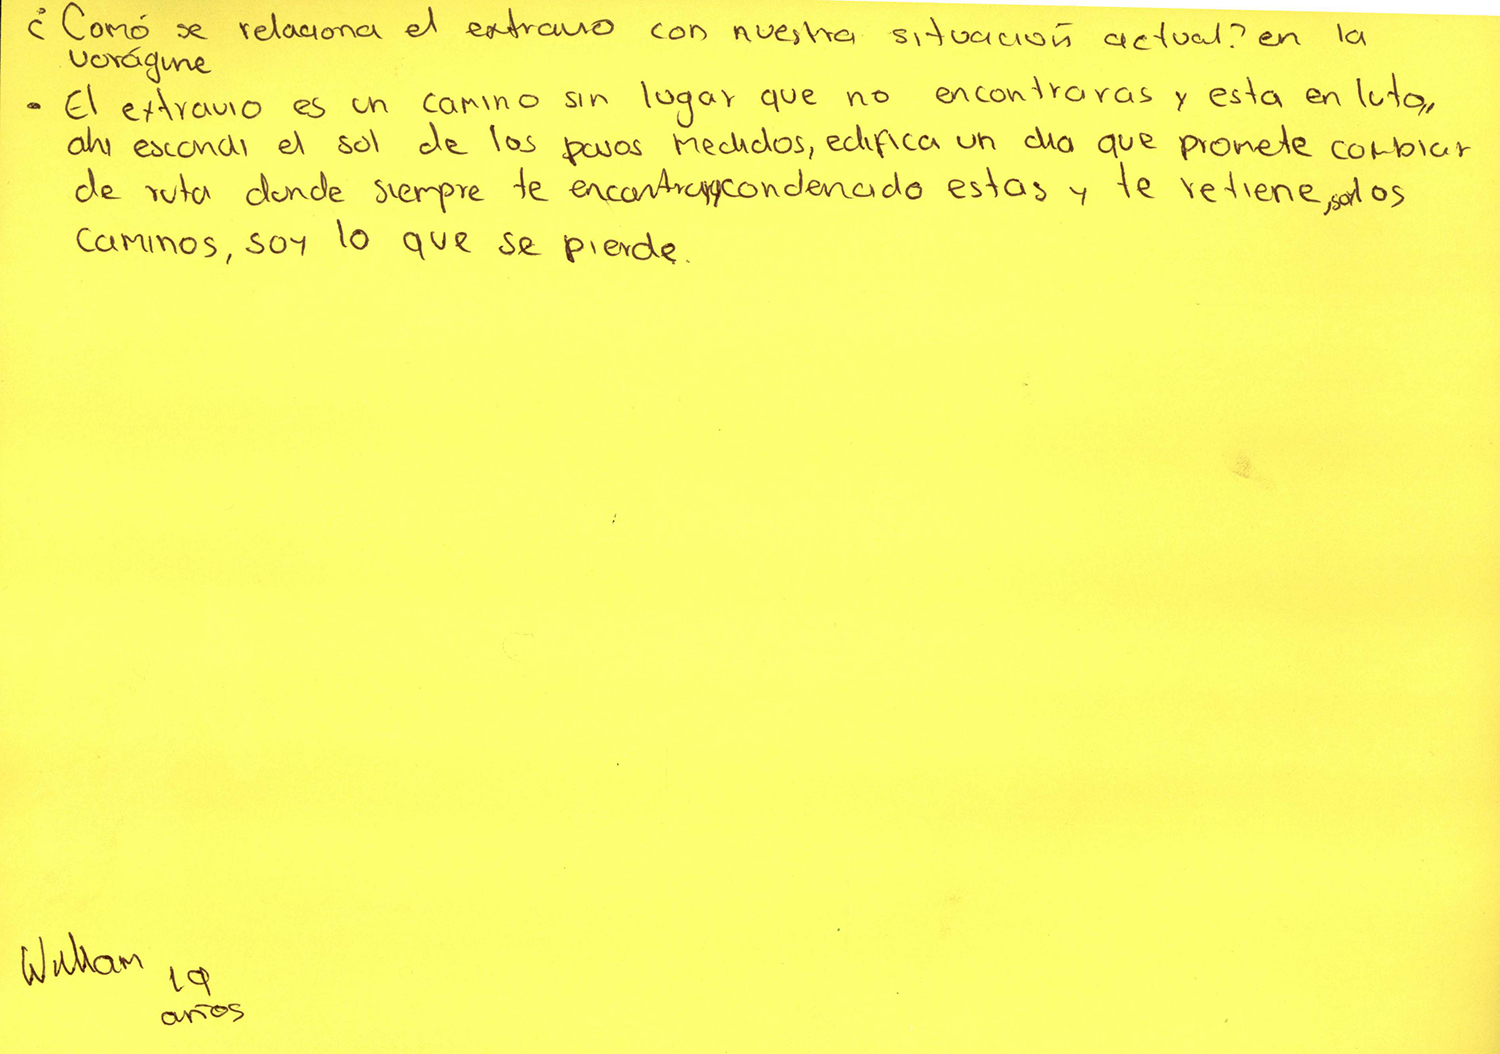 ¿Comó se relaciona el extravio con nuestra situacioñ actual? en la
vorágine
- El extravio es un camino sin lugar que no encontraras y esta en luto,,
ahi escondi el sol de los pasos medidos, edifica un dia que promete cambiar
de ruta donde siempre te encontraras condenado estas y te retiene, son los
caminos, soy lo que se pierde.
William
19
años